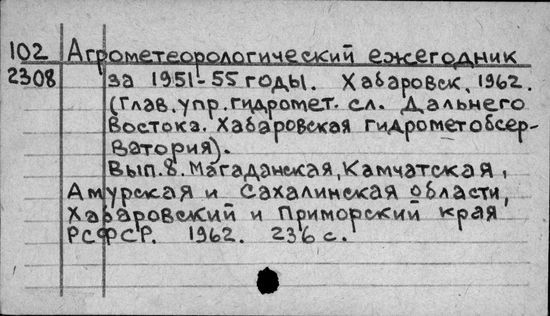 102 Агрометеорологический ежегодник
2308 за 1951-55 годы. Хабаровск, 1962.
(Глав. упр. гидромет. сл. Дальнего
Востока. Хабаровская гидрометобсер-
ватория).
Вып. 8. Магаданская, Камчатская,
Амурская и Сахалинская области,
Хабаровский и Приморский края
РСФСР. 1962. 236 с.